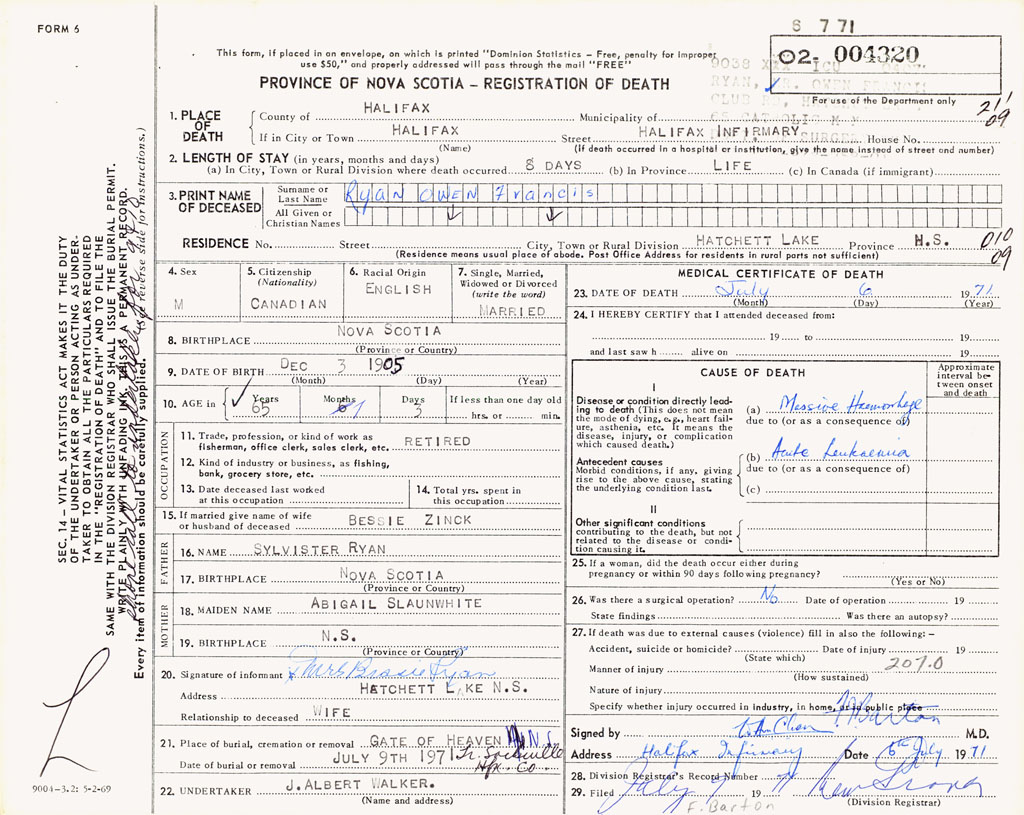 FORM 6
6 7 71
This form, if placed in an envelope, on which is printed "Dominion Statistics – Free, penalty for improper
use $50," and properly addressed will pass through the mail "FREE"
02- 004320
PROVINCE OF NOVA SCOTIA – REGISTRATION OF DEATH
For use of the Department only
1. PLACE OF DEATH
County of HALIFAX Municipality of
If in City or Town HALIFAX Street HALIFAX INFIRMARY House No.
(Name) (If death occurred in a hospital or institution, give the name instead of street and number)
2. LENGTH OF STAY (in years, months and days)
(a) In City, Town or Rural Division where death occurred 8 DAYS (b) In Province LIFE (c) In Canada (if immigrant)
3. PRINT NAME OF DECEASED
Surname or Last Name Ryan Owen Francis
All Given or Christian Names
RESIDENCE No. Street City, Town or Rural Division HATCHETT LAKE Province N.S.
(Residence means usual place of abode. Post Office Address for residents in rural parts not sufficient)
4. Sex
M
5. Citizenship
(Nationality)
CANADIAN
6. Racial Origin
ENGLISH
7. Single, Married,
Widowed or Divorced
(write the word)
MARRIED
8. BIRTHPLACE NOVA SCOTIA
(Province or Country)
9. DATE OF BIRTH DEC 3 1905
(Month) (Day) (Year)
10. AGE in
Years Months Days If less than one day old
65 3 hrs. or min.
OCCUPATION
11. Trade, profession, or kind of work as
fisherman, office clerk, sales clerk, etc. RETIRED
12. Kind of industry or business, as fishing,
bank, grocery store, etc.
13. Date deceased last worked
at this occupation
14. Total yrs. spent in
this occupation
15. If married give name of wife
or husband of deceased BESSIE ZINCK
FATHER
16. NAME SYLVISTER RYAN
17. BIRTHPLACE NOVA SCOTIA
(Province or Country)
MOTHER
18. MAIDEN NAME ABIGAIL SLAUNWHITE
19. BIRTHPLACE N.S.
(Province or Country)
20. Signature of informant Mrs Bessie Ryan
Address HATCHETT LAKE N.S.
Relationship to deceased WIFE
21. Place of burial, cremation or removal GATE OF HEAVEN N.S.
Date of burial or removal JULY 9TH 1971 Lr. Sackville
Hfx. Co.
22. UNDERTAKER J.ALBERT WALKER.
(Name and address)
MEDICAL CERTIFICATE OF DEATH
23. DATE OF DEATH July 6 1971
(Month) (Day) (Year)
24. I HEREBY CERTIFY that I attended deceased from:
19 to 19
and last saw h alive on 19
CAUSE OF DEATH
Approximate
interval be-
tween onset
and death
I
Disease or condition directly lead-
ing to death (This does not mean
the mode of dying, e.g., heart fail-
ure, asthenia, etc. It means the
disease, injury, or complication
which caused death.)
(a) Massive Haemorrhage
due to (or as a consequence of)
Antecedent causes
Morbid conditions, if any, giving
rise to the above cause, stating
the underlying condition last.
(b) Acute Leukaemia
due to (or as a consequence of)
(c)
II
Other significant conditions
contributing to the death, but not
related to the disease or condi-
tion causing it.
25. If a woman, did the death occur either during
pregnancy or within 90 days following pregnancy?
(Yes or No)
26. Was there a surgical operation? No Date of operation 19
State findings Was there an autopsy?
27. If death was due to external causes (violence) fill in also the following:–
Accident, suicide or homicide? Date of injury 19
(State which)
207.0
Manner of injury
(How sustained)
Nature of injury
Specify whether injury occurred in industry, in home, or in public place
Signed by F Barton M.D.
Address Halifax Infirmary Date 6th July 1971
28. Division Registrar's Record Number
29. Filed July 7 19 71
(Division Registrar)
F. Barton
SEC. 14 – VITAL STATISTICS ACT MAKES IT THE DUTY
OF THE UNDERTAKER OR PERSON ACTING AS UNDER-
TAKER TO OBTAIN ALL THE PARTICULARS REQUIRED
IN THE "REGISTRATION OF DEATH" AND TO FILE THE
SAME WITH THE DIVISION REGISTRAR WHO SHALL ISSUE THE BURIAL PERMIT.
WRITE PLAINLY WITH UNFADING INK. THIS IS A PERMANENT RECORD.
Every item of information should be carefully supplied. (See reverse side for instructions.)
9004-3.2: 5-2-69